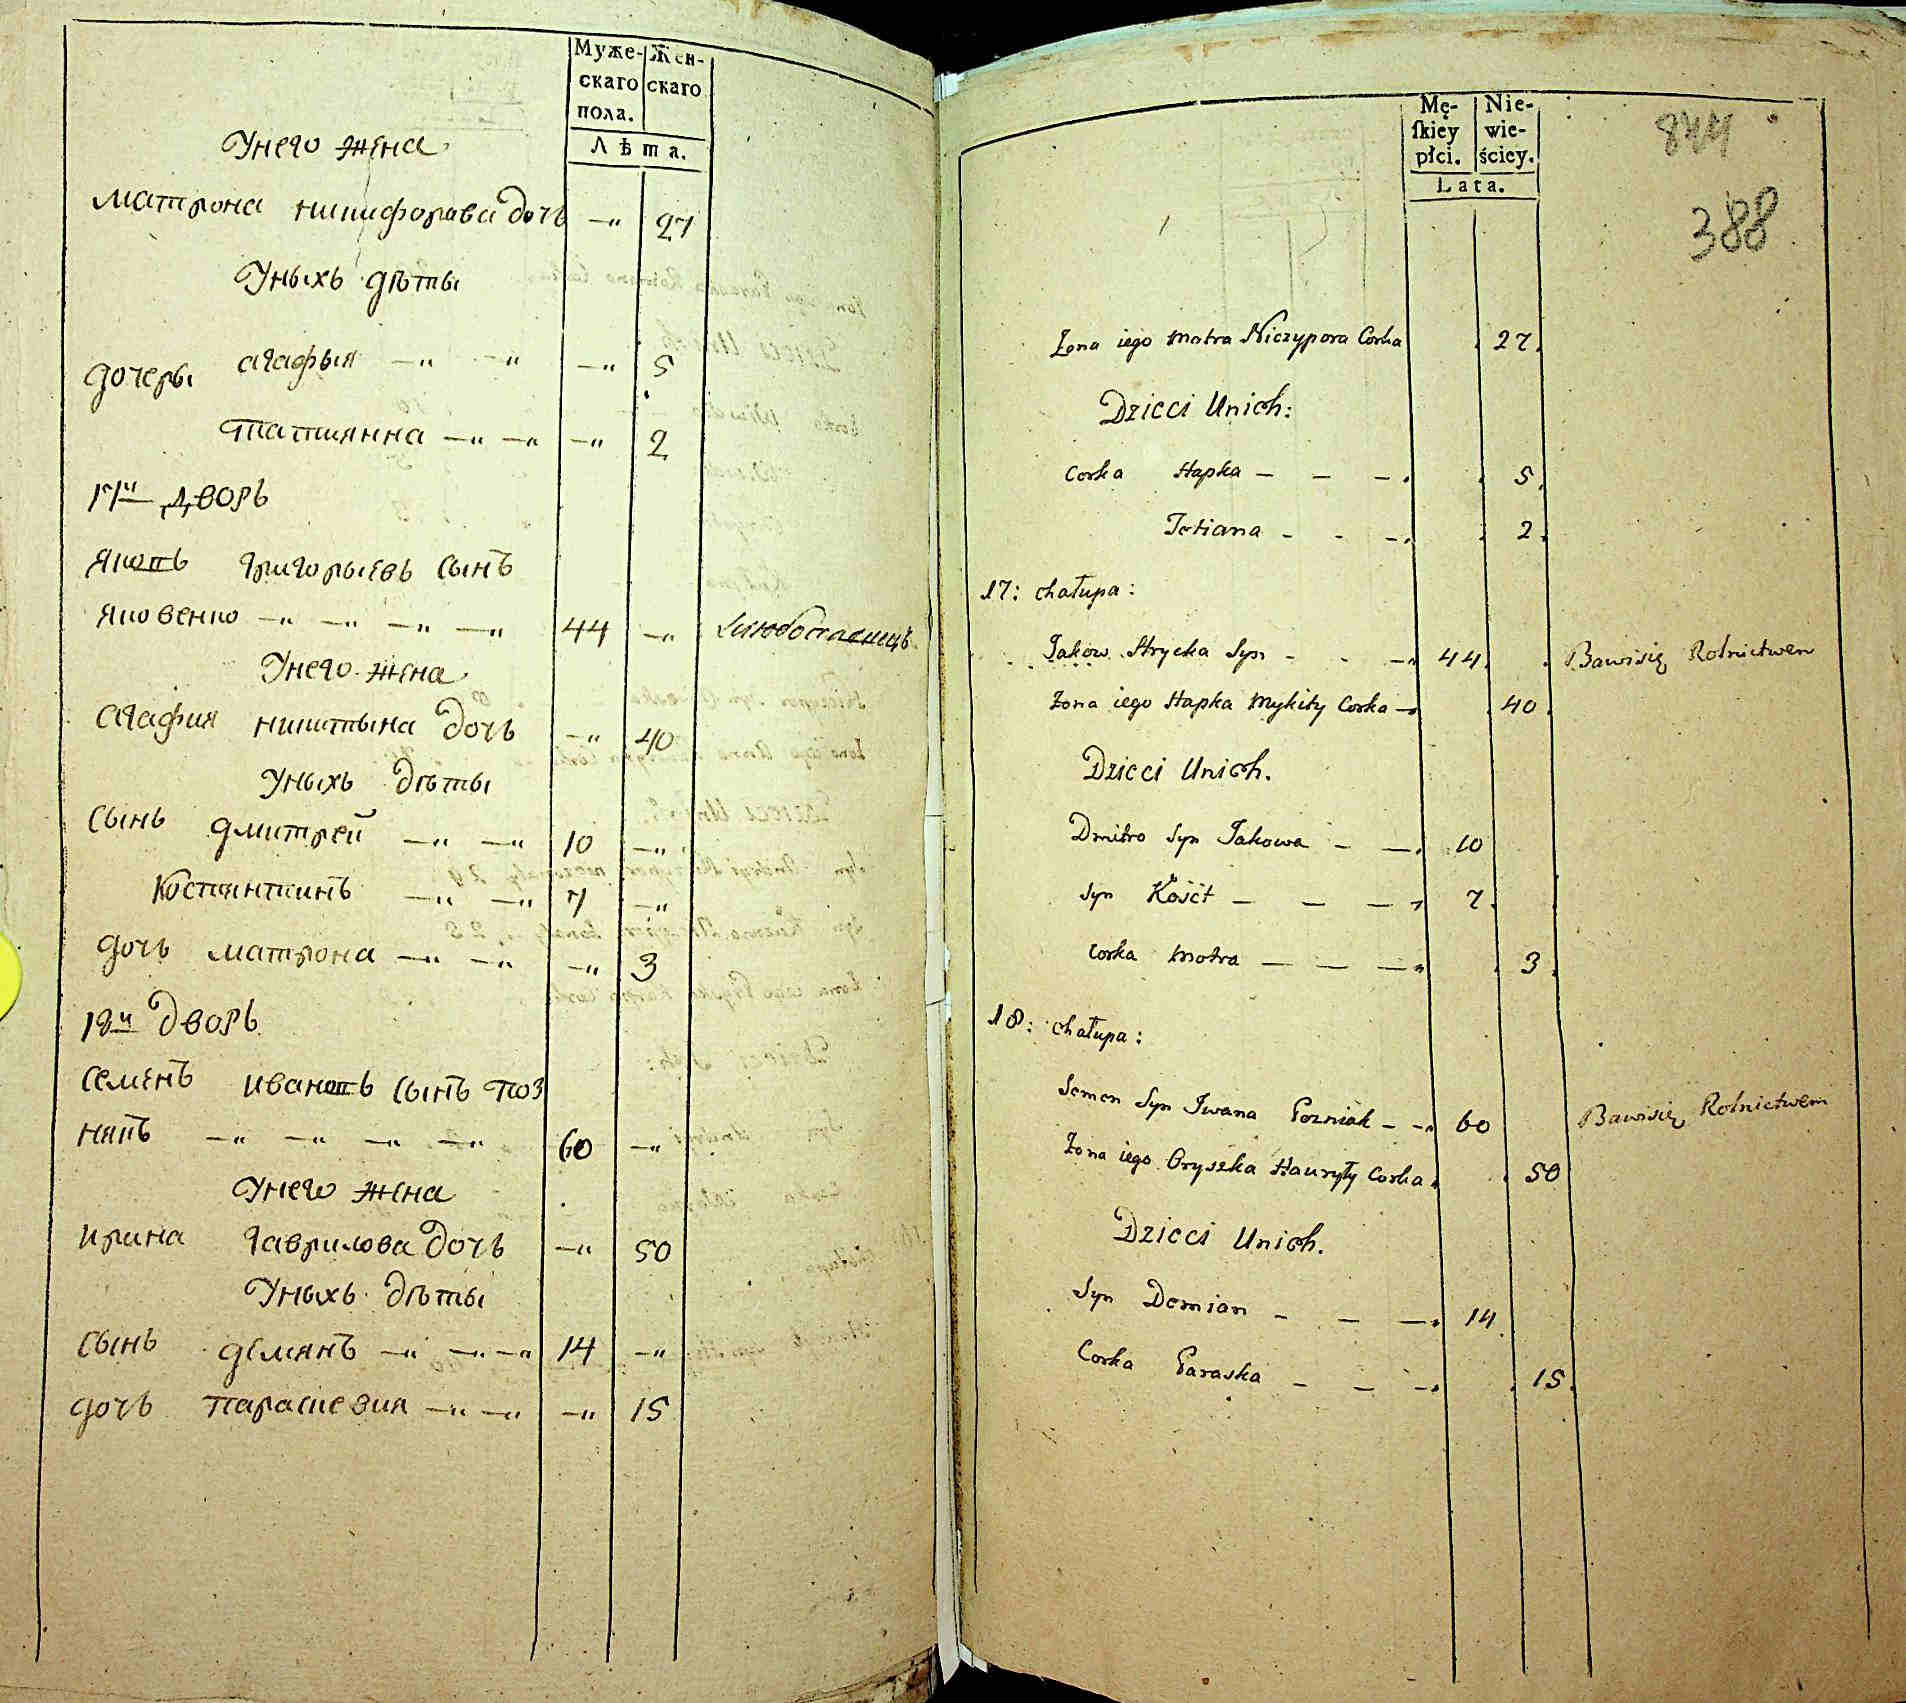 Муже-
скаго
пола.
Жен-
скаго
Лѣта.
Унего жена
матрона никифорава дочь —„ 27
Уныхъ дѣты
дочеры агафыя —„ —„ —„ 5
татиянна —„ —„ —„ 2
17й дворъ
яковъ григорыевъ сынъ
яковенко —„ —„ —„ —„ 44 —„
Унего жена
агафия никитына дочь —„ 40
Уныхъ дѣты
сынъ дмитрей —„ —„ 10 —„
Костянтинъ —„ —„ 7 —„
дочь матрона —„ —„ —„ 3
18й дворъ
семенъ ивановъ сынъ поз
някъ —„ —„ —„ —„ 60 —„
Унего жена
ирина гаврилова дочь —„ 50
Уныхъ дѣты
сынъ демянъ —„ —„ —„ 14 —„
дочь параскевия —„ —„ —„ 15
Mę-
ſkiey
płci.
Nie-
wie-
ściey.
Lata.
844
388
Żona iego Motra Niczypora Corka 27.
Dzieci Unich:
Corka Hapka — — — 5.
Tetiana — — — 2.
17: chałupa:
Jakow Hrycka Syn — — — 44. Bawisię Rolnictwem
Żona iego Hapka Mykity Corka — 40.
Dzieci Unich.
Dmitro Syn Jakowa — — 10
Syn Kośćt — — — 7.
Corka Motra — — — 3.
18: chałupa:
Semen Syn Iwana Pozniak — — 60 Bawisię Rolnictwem
Żona iego Oryszka Hauryły Corka. 50
Dzieci Unich.
Syn Demian — — — 14.
Corka Paraska — — — 15.